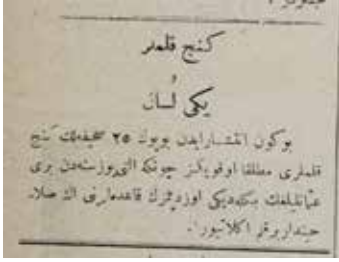 كنج قلملر
و
يكى لسان
بوكون انتشار ايدن بويوك ٢٥ صحيفه‌لك كنج
قلملرى مطلقا اوقويكز چونكه التى يوز سنه‌دن برى
عثمانليلغك بكله‌ديكى اوز تركجه قاعده‌لرنى اك صلا
حيتدار بر قلم اكلاتيور.